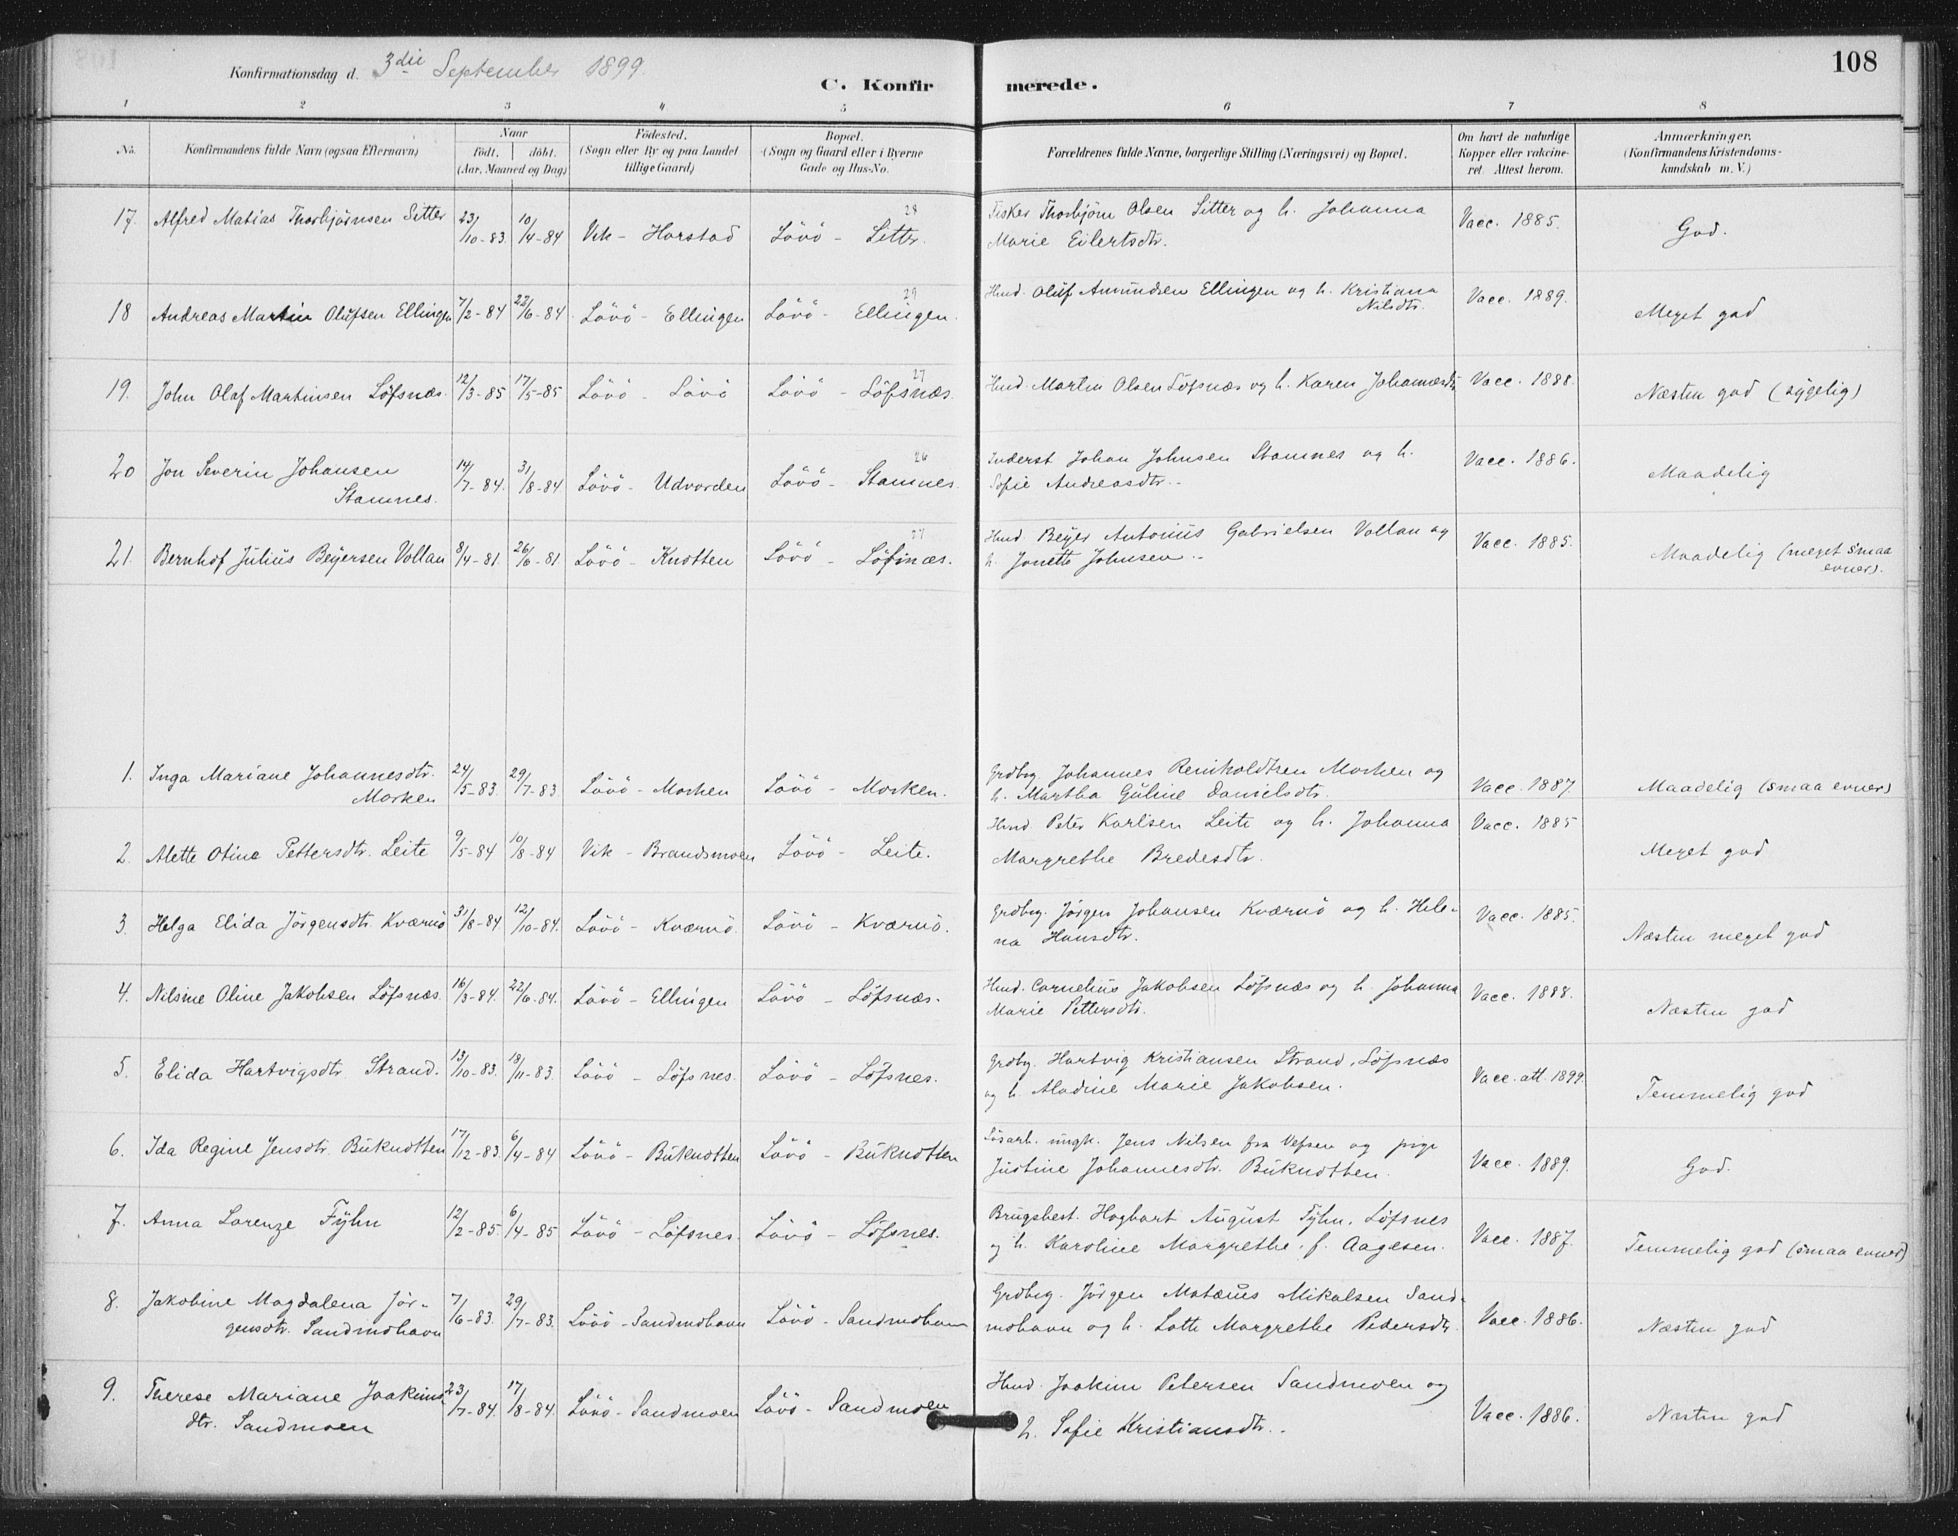 108
Konfirmationsdag d. 3die September 1899.
C. Konfirmerede.
1 2 3 4 5 6 7 8
No. Konfirmandens fulde Navn (ogsaa Efternavn) Naar födt. döbt. (Aar, Maaned og Dag) Födested. (Sogn eller By og paa Landet tillige Gaard) Bopæl. (Sogn og Gaard eller i Byerne Gade og Hus-No. Forældrenes fulde Navne, borgerlige Stilling (Næringsvei) og Bopæl. Om havt de naturlige Kopper eller vakcineret. Attest herom. Anmærkninger. (Konfirmandens Kristendomskundskab m. V.)
17. Alfred Matias Thorbjörnsen Sitter 23/10-83. 10/4-84 Vik - Horstad Lövö - Sitter. 28 Fisker Thorbjörn Olsen Sitter og h. Johanna Marie Eilertsdtr. Vacc. 1885. God.
18 Andreas Martin Olufsen Ellingen 7/2-84 22/6-84 Lövö - Ellingen Lövö - Ellingen. 29 Hmd. Oluf Amundsen Ellingen og h. Kristiana Nilsdtr. Vacc. 1889. Meget god
19. John Olaf Martinsen Löfsnæs. 12/3-85 17/5-85 Lövö - Lövö Lövö - Löfsnæs. 27 Hmd. Martin Olsen Löfsnæs og h. Karen Johannesdtr Vacc. 1888. Næsten god (sygelig)
20 Jon Severin Johansen Stamnes. 14/7-84. 31/8-84 Lövö - Udvorden Lövö - Stamnes. 26 Inderst Johan Johnsen Stamnes og h. Sofie Andreasdtr. Vacc. 1886. Maadelig
21. Bernhof Julius Beyersen Vollan 8/4-81. 26/6-81. Lövö - Knotten Lövö - Löfsnæs. 27 Hmd. Beyer Antonius Gabrielsen Vollan og h. Jonette Johnsen Vacc. 1885. Maadelig (meget smaa evner).
1. Inga Mariane Johannesdtr. Morken 24/5-83 29/7-83. Lövö - Morken Lövö - Morken. Grdbrg. Johannes Reinholdtsen Morken og h. Martha Guline Danielsdtr. Vacc. 1887. Maadelig (smaa evner)
2. Alette Otine Pettersdtr. Leite 9/5-84 10/8-84 Vik - Brandsmoen Lövö - Leite. Hmd Peter Karlsen Leite og h. Johanna Margrethe Bredesdtr. Vacc. 1885 Meget god
3. Helga Elida Jörgensdtr. Kværnö 31/8-84 12/10-84. Lövö - Kværnö. Lövö - Kværnö. Grdbrg. Jörgen Johansen Kværnö og h. Helena Hansdtr. Vacc. 1885. Næsten meget god
4. Nilsine Oline Jakobsen Löfsnæs. 16/3-84. 22/6-84. Lövö - Ellingen Lövö - Löfsnæs. Hmd. Cornelius Jakobsen Löfsnæs og h. Johanna Marie Pettersdtr. Vacc. 1888. Næsten god
5. Elida Hartvigsdtr Strand. 13/10-83. 18/11-83. Lövö - Löfsnes. Lövö - Löfsnes. Grdbg. Hartvig Kristiansen Strand, Löfsnæs og h. Aladine Marie Jakobsen. Vacc. att. 1899. Temmelig god
6. Ida Regine Jensdtr. Buknotten 17/12-83. 6/4-84 Lövö - Buknotten Lövö - Buknotten Lösarb. ungk. Jens Nilsen fra Vefsen og pige Justine Johannesdtr. Buknotten. Vacc. 1889. God.
7. Anna Lorenze Fyhn 12/2-85. 6/4-85 Lövö - Löfsnes. Lövö - Löfsnes. Brugsbest. Hagbart August Fyhn, Löfsnes og h. Karoline Margrethe f. Aagesen. Vacc. 1887. Temmelig god (smaa evner)
8. Jakobine Magdalena Jörgensdtr. Sandmohavn 7/6-83. 29/7-83. Lövö - Sandmohavn Lövö - Sandmohavn Grdbrg. Jörgen Matæus Mikalsen Sandmohavn og h. Lotte Margrethe Pedersdtr. Vacc. 1886. Næsten god
9. Therese Mariane Joakimsdtr. Sandmoen 23/7-84. 17/8-84. Lövö - Sandmoen Lövö - Sandmoen Hmd. Joakim Petersen Sandmoen og h. Sofie Kristiansdtr. Vacc. 1886. Næsten god